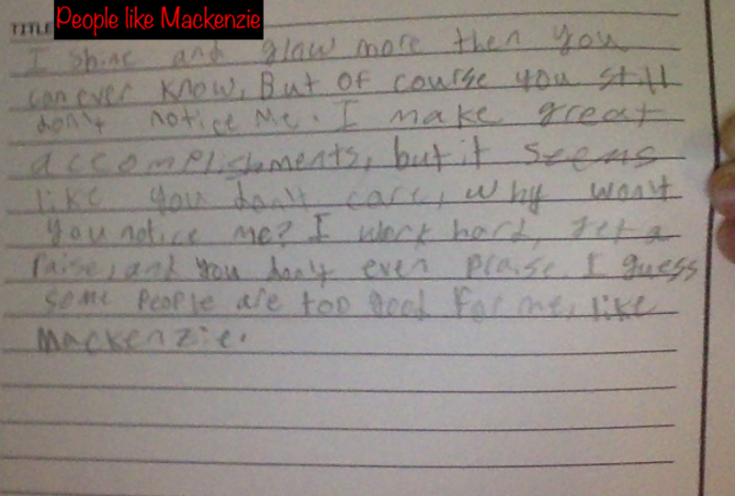 TITLE People like Mackenzie
I shine and glow more then you
can ever know. But of course you still
don't notice me. I make great
accomplishments, but it seems
like you don't care, why won't
you notice me? I work hard, get a
raise, and you don't even praise. I guess
some people are too good for me, like
Mackenzie.